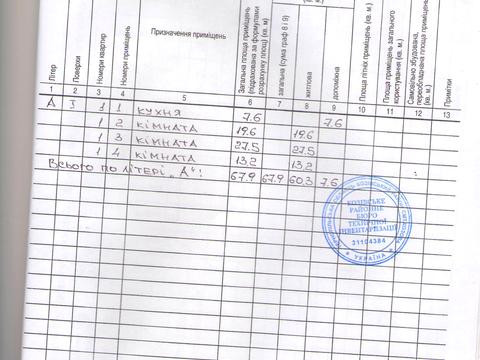 Літер
Поверхи
Номери квартир
Номери приміщень
Призначення приміщень
Загальна площа приміщень (підрахована за формулами розрахунку площі) (кв. м)
загальна (сума граф 8 і 9)
житлова
допоміжна
Площа літніх приміщень (кв. м.)
Площа приміщень загального користування (кв. м)
Самовільно збудована, переобладнана площа приміщень (кв. м.)
Примітки
1 2 3 4 5 6 7 8 9 10 11 12 13
А І 1 1 кухня 7.6 7.6
1 2 кімната 19.6 19.6
1 3 кімната 27.5 27.5
1 4 кімната 13.2 13.2
Всього по літері „А“: 67.9 67.9 60.3 7.6
РАЙОННЕ
БЮРО
ТЕХНІЧНОЇ
ІНВЕНТАРИЗАЦІЇ
31104384
УКРАЇНА